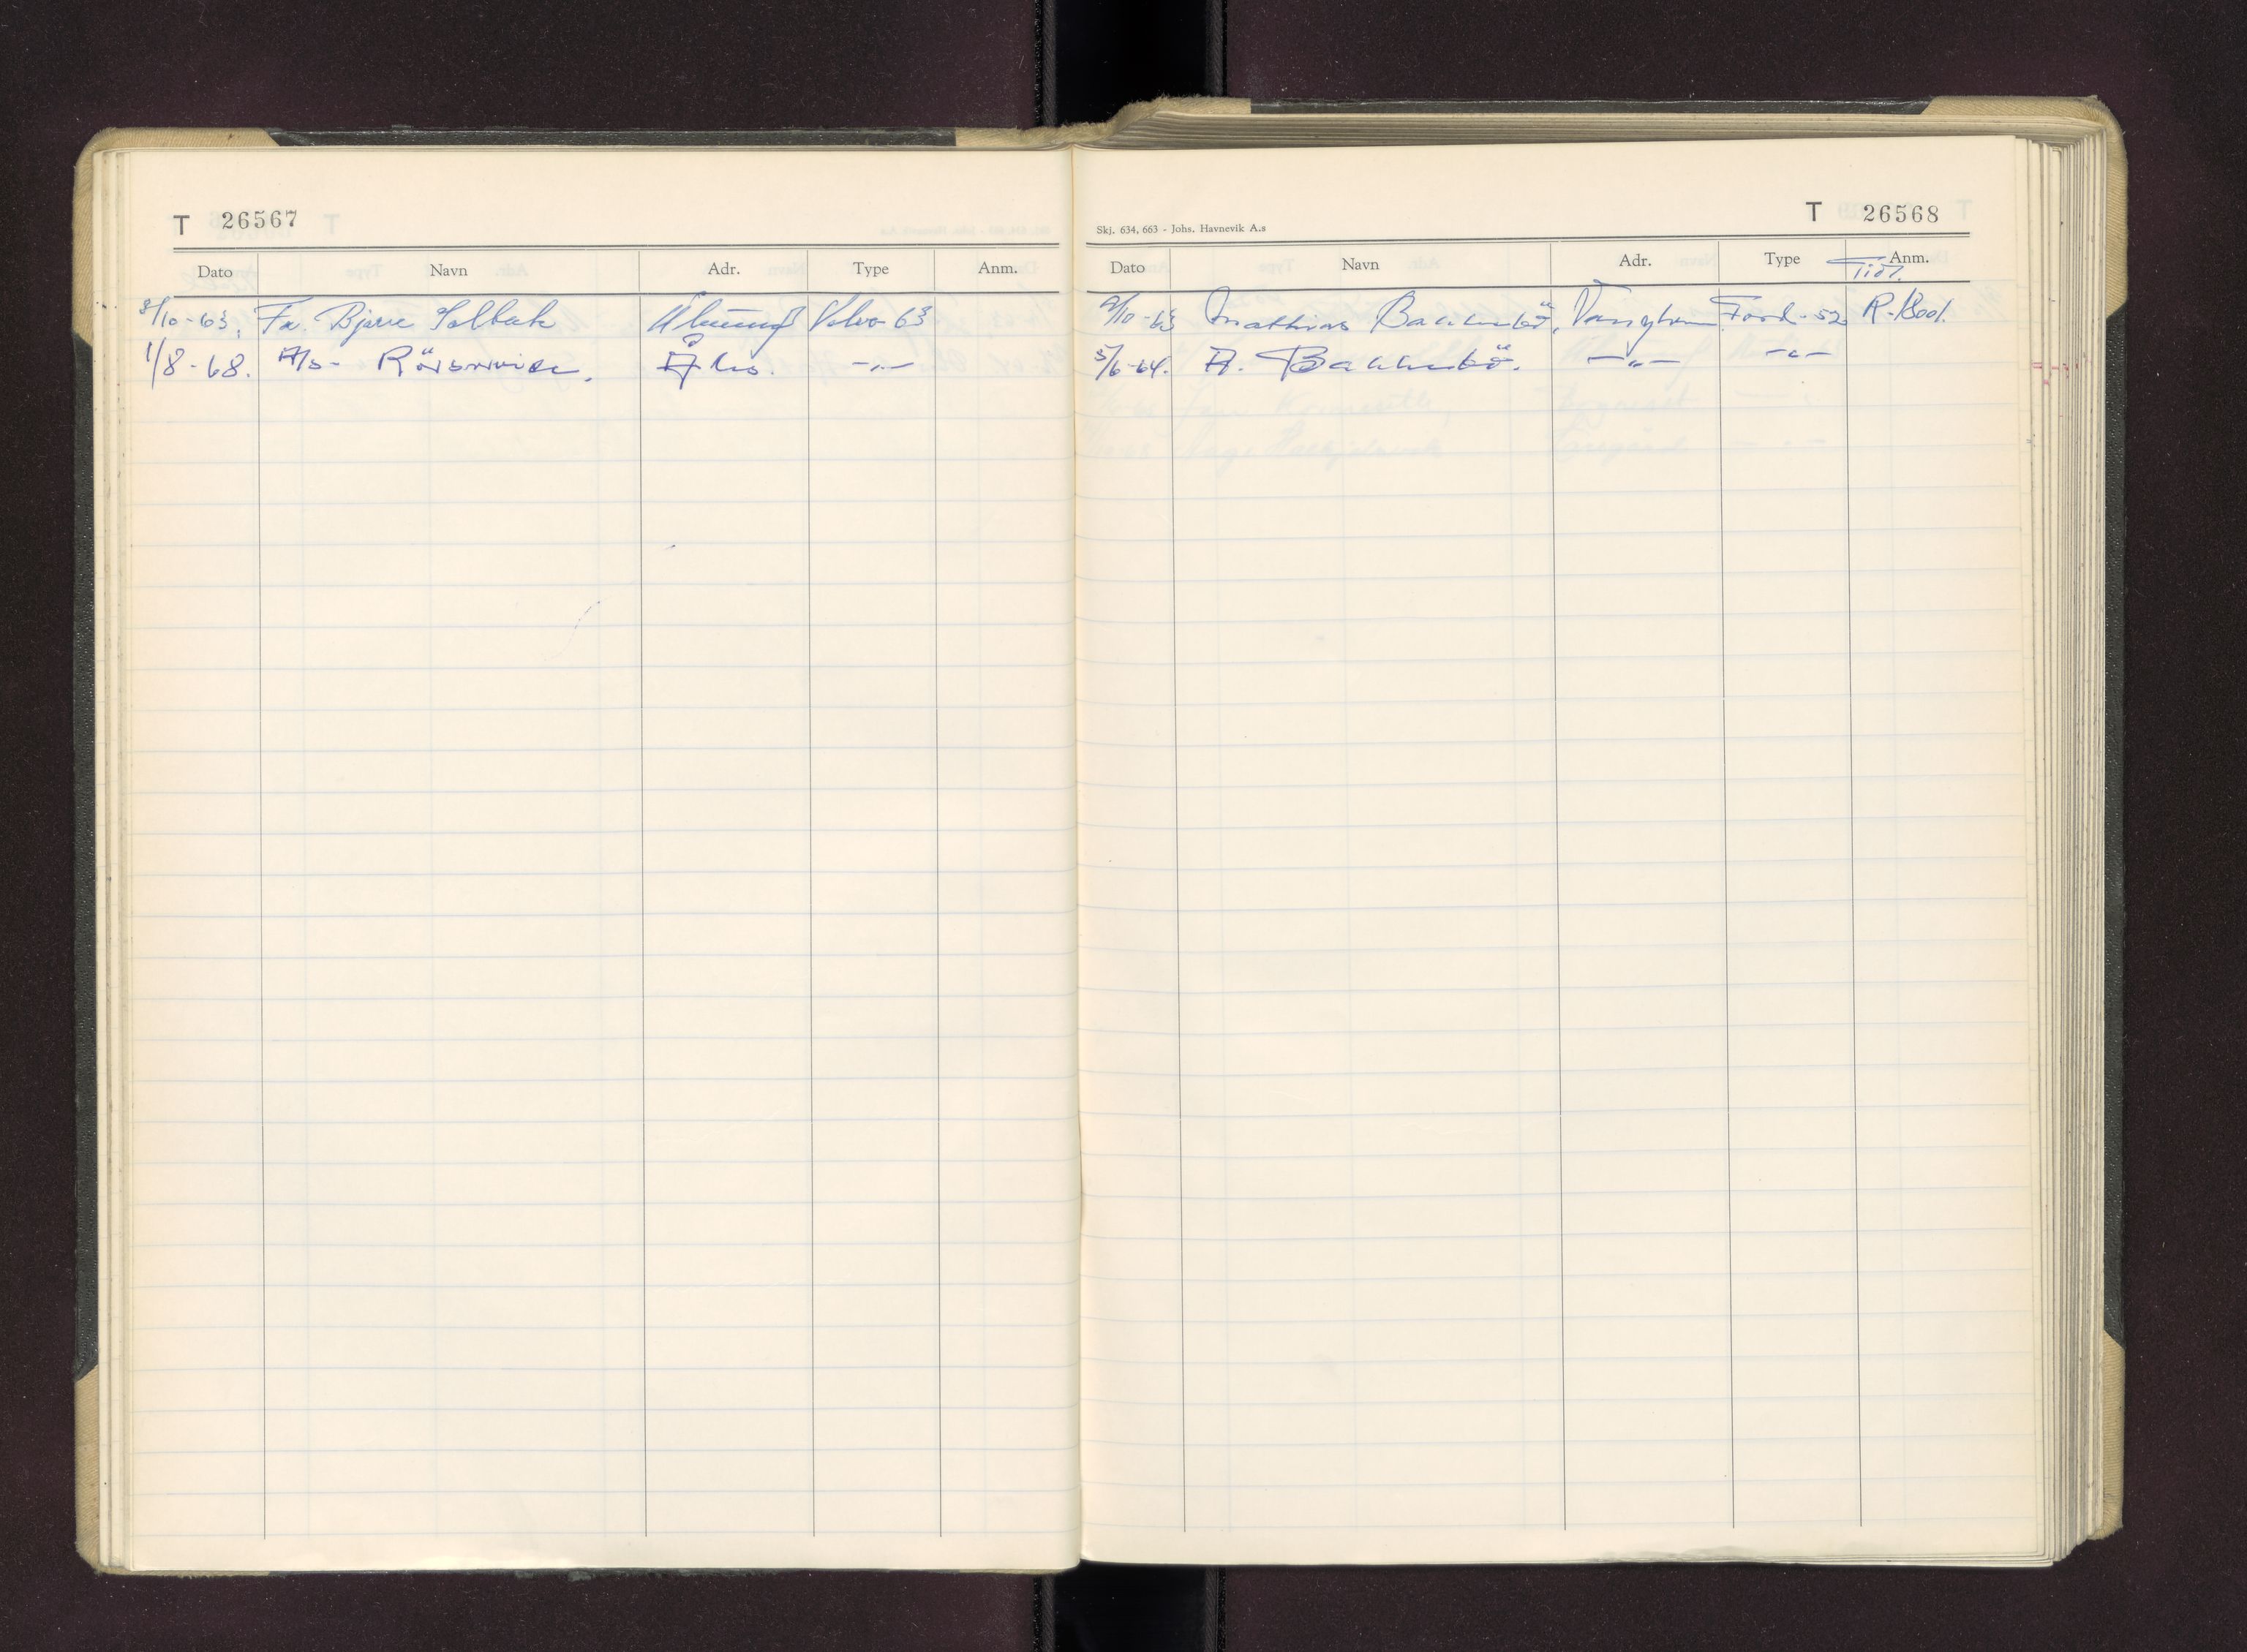 T 26567
Dato Navn Adr. Type Anm.
8/10-63. Fa. Bjarne Solbakk Ålesund Volvo 63
1/8-68. A/s- Ålis. -"-
Skj. 634, 663 - Johs. Havnevik A.s T 26568
Dato Navn Adr. Type Anm.
Tidl.
9/10-63 Mathias Bakkebö, Ford-52 R-1800
5/6-64. A. Bakkebö. -"- -"-